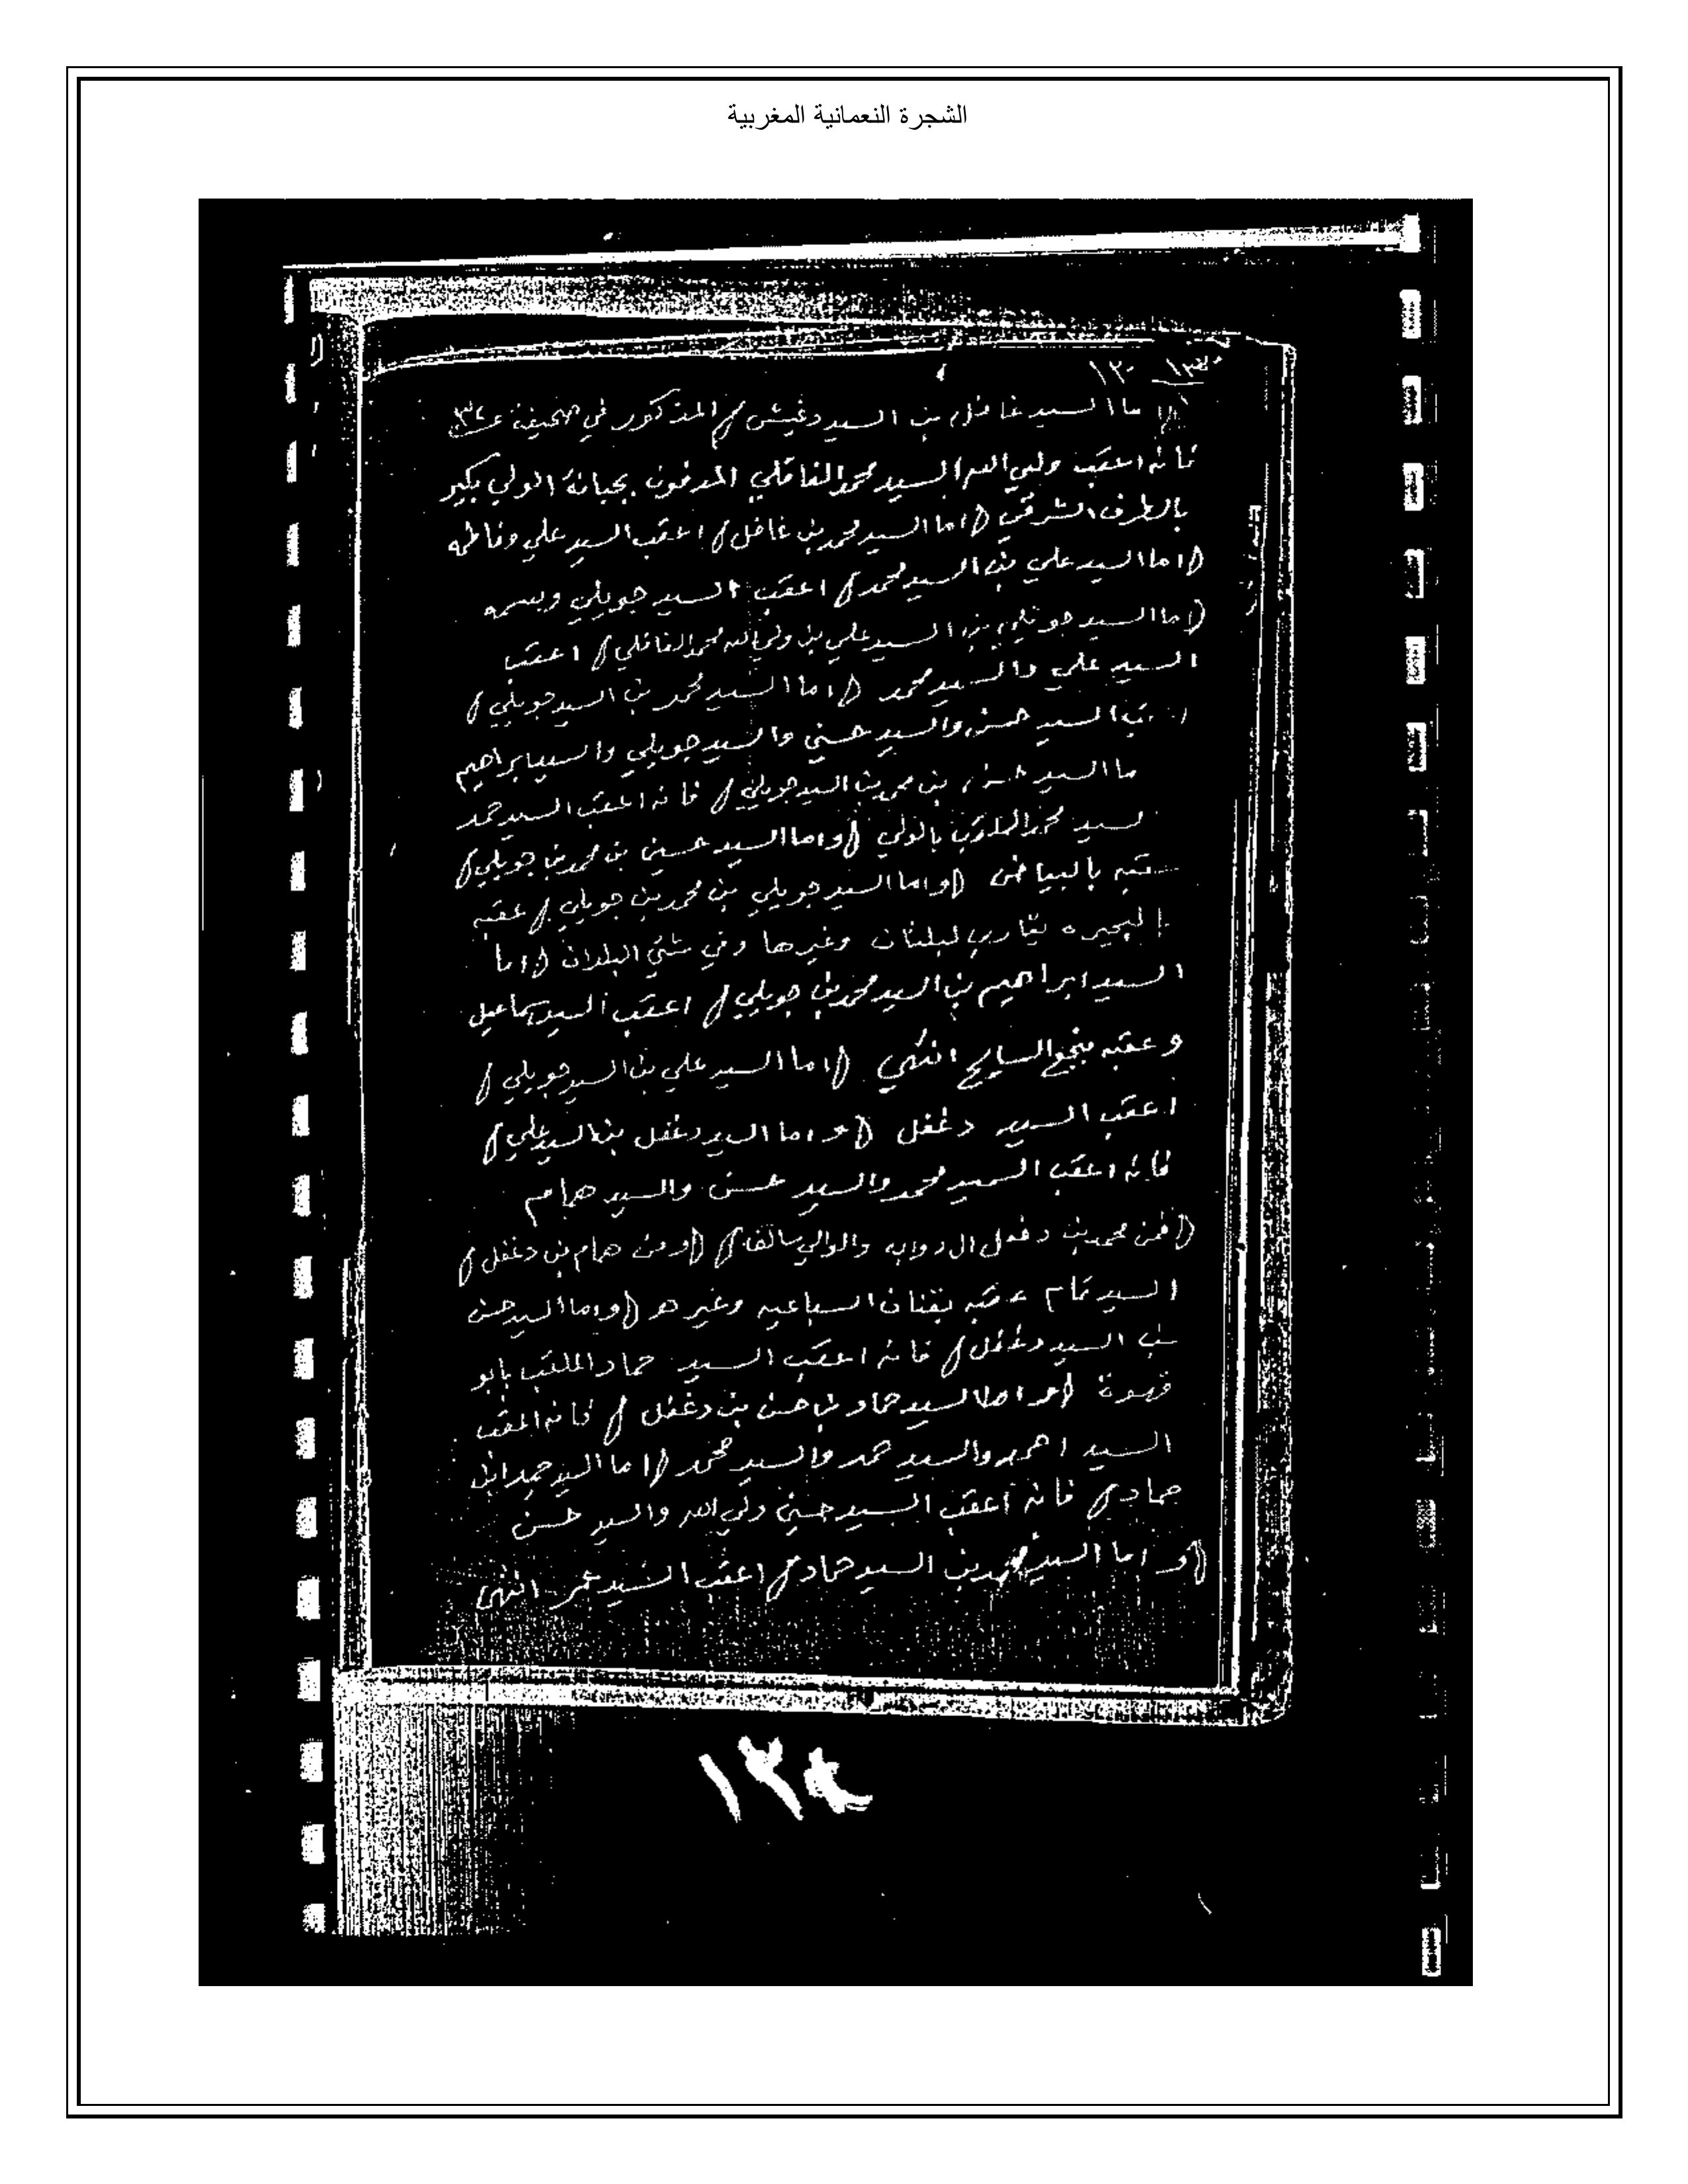 الشجرة النعمانية المغربية
١٢٠
ما السيد غافل بن السيد دغيش المذكور في صحيفة
فانه اعقب ولي الله السيد محمد الغافلي المدفون بجبانة الولي بكير
بالطرف الشرقي (اما السيد محمد بن غافل) اعقب السيد علي وفاطمه
(اما السيد علي بن السيد محمد) اعقب السيد جويلي وبسمه
(اما السيد جويلي بن السيد علي بن ولي الله محمد الغافلي) اعقب
السيد علي والسيد محمد (اما السيد محمد بن السيد جويلي)
السيد حسن والسيد حسين والسيد جويلي والسيد ابراهيم
ما السيد حسن بن محمد بن السيد جويلي) فانه اعقب السيد حمد
لسيد محمد الملقب بالولي (واما السيد حسين بن محمد بن جويلي)
بالبياض (واما السيد جويلي بن محمد بن جويلي) عقبه
بالبحيره وغيرها وفي شتي البلدان (اما
السيد ابراهيم بن السيد محمد بن جويلي) اعقب السيد اسماعيل
وعقبه بنجع السايح انتهي (اما السيد علي بن السيد جويلي)
اعقب السيد دغفل (و اما السيد دغفل بن السيد علي)
فانه اعقب السيد محمد والسيد حسن والسيد همام
(فمن محمد بن دغفل ال (ومن همام بن دغفل)
السيد تمام عقبه السباعيه وغيرهم (واما السيد حسن
بن السيد دغفل) فانه اعقب السيد حماد الملقب بابو
قهوة (و اما السيد حماد بن حسن بن دغفل) فانه اعقب
السيد احمد والسيد حمد والسيد محمد (اما السيد حمد ابن
حماد) فانه اعقب السيد حسين ولي الله والسيد حسن
(و اما السيد محمد بن السيد حماد) اعقب السيد عمر انتهى
١٢٤